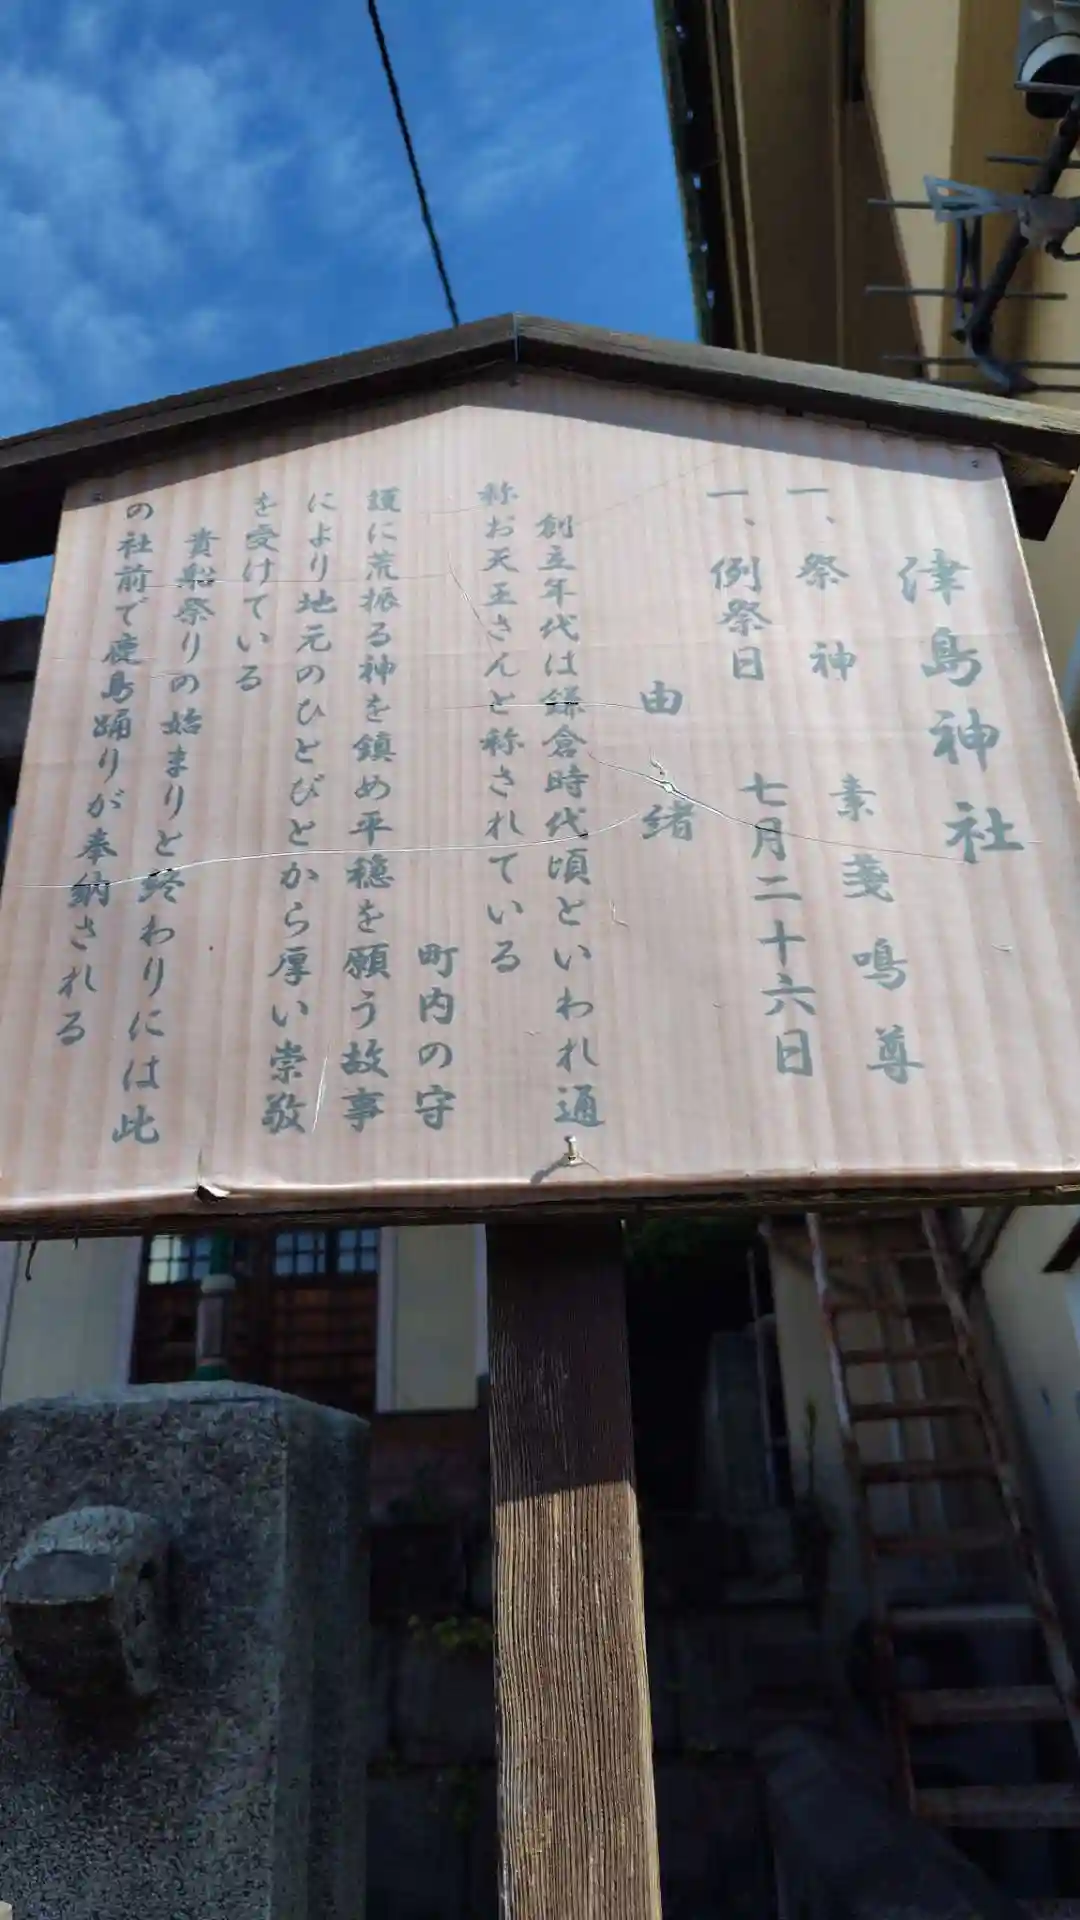 津島神社
一、祭神 素戔鳴尊
一、例祭日 七月二十六日
由緒
創立年代は鎌倉時代頃といわれ通
称お天王さんと称されている
町内の守
護に荒振る神を鎮め平穏を願う故事
により地元のひとびとから厚い崇敬
を受けている
貴船祭りの始まりと終わりには此
の社前で鹿島踊りが奉納される